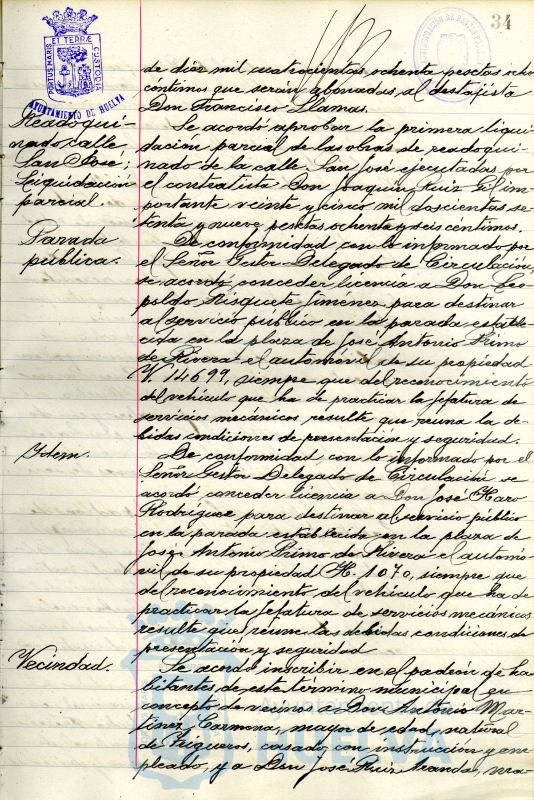 34
PORTUS MARIS ET TERRÆ CUSTODIA
AYUNTAMIENTO DE HUELVA
de diez mil cuatrocientas ochenta pesetas ocho
céntimos que serán abonadas al destajista
Don Francisco Llamas.
Readoqui-
nado calle
San José;
Liquidación
parcial.
Se acordó aprobar la primera liqui-
dación parcial de las obras de readoqui-
nado de la calle San José ejecutadas por
el contratista Don Joaquín Ruiz Gil im-
portante veinte y cinco mil doscientas se-
tenta y nueve pesetas ochenta y seis centimos.
Parada
pública.
De conformidad con lo informado por
el Señor Gestor Delegado de Circulación,
se acordó conceder licencia a Don Leo-
poldo Risquete Jiménez para destinar
al servicio público en la parada estable-
cida en la plaza de José Antonio Primo
de Rivera el automóvil de su propiedad
14699, siempre que del reconocimiento
del vehículo que ha de practicar la jefatura de
servicios mecánicos resulte que reuna la de-
bidas condiciones de presentación y seguridad.
Idem.
De conformidad con lo informado por el
Señor Gestor Delegado de Circulación se
acordó conceder licencia a Don José Haro
Rodríguez para destinar al servicio público
en la parada establecida en la plaza de
José Antonio Primo de Rivera el automó-
vil de su propiedad H. 1070, siempre que
del reconocimiento del vehículo que ha de
practicar la jefatura de servicios mecánicos
resulte que reune las debidas condiciones de
presentación y seguridad
Vecindad.
Se acordó inscribir en el padrón de ha-
bitantes de este término municipal en
concepto de vecinos a Don Antonio Mar-
tinez Carmona, mayor de edad, natural
de Trigueros, casado, con instrucción y em-
pleado, y a Don José Ruiz Aranda, ma-
HUELVA